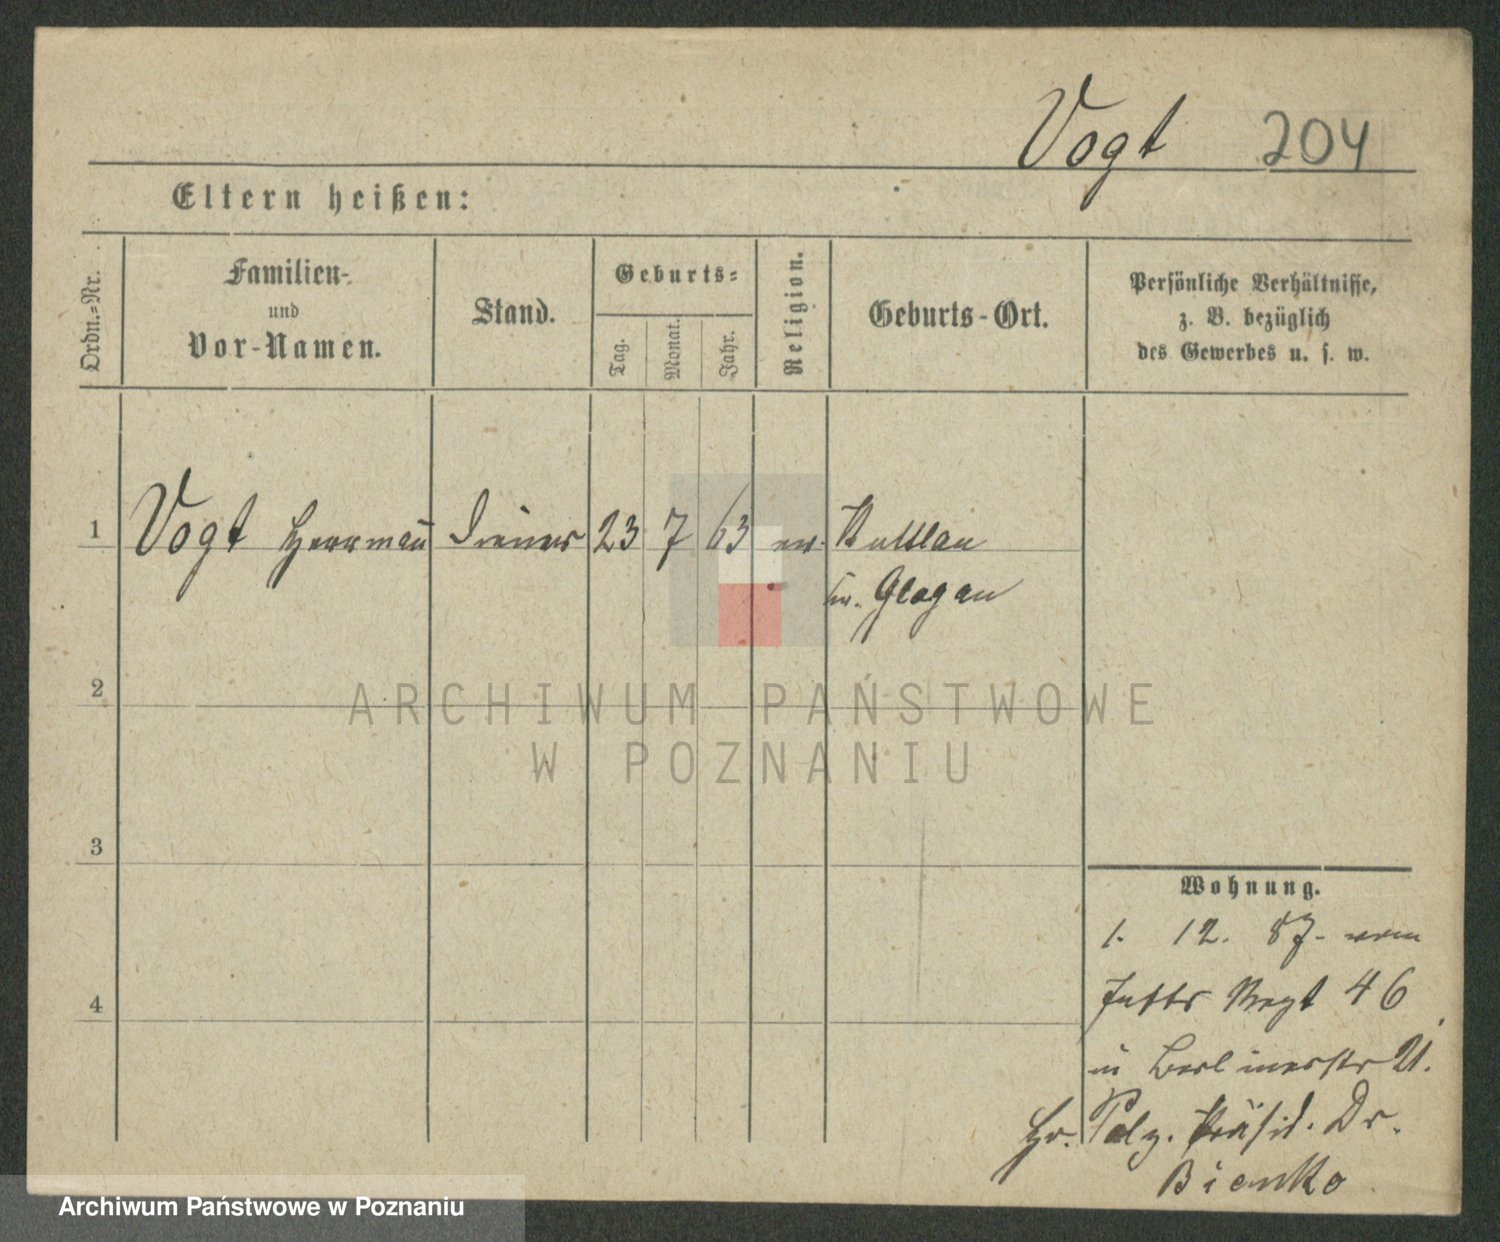 Vogt 204
Eltern heißen:
Ordn.-Nr.
Familien-
und
Vor-Namen.
Stand.
Geburts-
Tag.
Monat.
Jahr.
Religion.
Geburts-Ort.
Persönliche Verhältnisse,
z. B. bezüglich
des Gewerbes u. s. w.
1 Vogt Herrman̄ Diener 23 7 63 ev. Kuttlau
Kr. Glogau
2
ARCHIWUM PAŃSTWOWE
W POZNANIU
3
Wohnung.
1. 12. 87. vom
Inftr Regt 46
in Berlinerstr 21.
Hr. Polz. Präsid. Dr.
Bienko
4
Archiwum Państwowe w Poznaniu